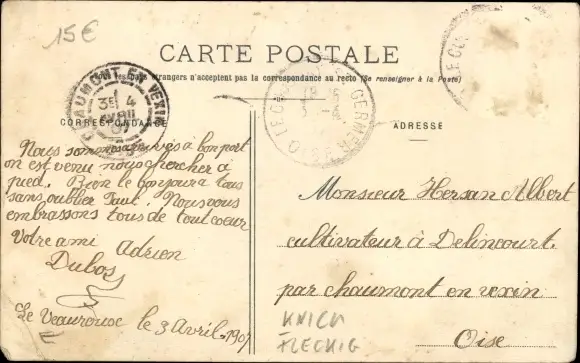 15€
CARTE POSTALE
étrangers n'acceptent pas la correspondance au recto (Se renseigner à la Poste)
CHAUMONT-EN-VEXIN
3E 4
AVRIL
07
GERMER
OISE
CORRESPONDANCE
ADRESSE
Nous sommes arrivés à bon port
on est venu nous chercher à
pied. Bien le bonjour à tous
sans oublier Paul. Nous vous
embrassons tous de tout coeur
Votre ami Adrien
Dubos
Le Vauroux le 3 Avril 1907
Monsieur Hersan Albert
cultivateur à Delincourt.
par chaumont en vexin
Oise
KNICK
FLECKIG